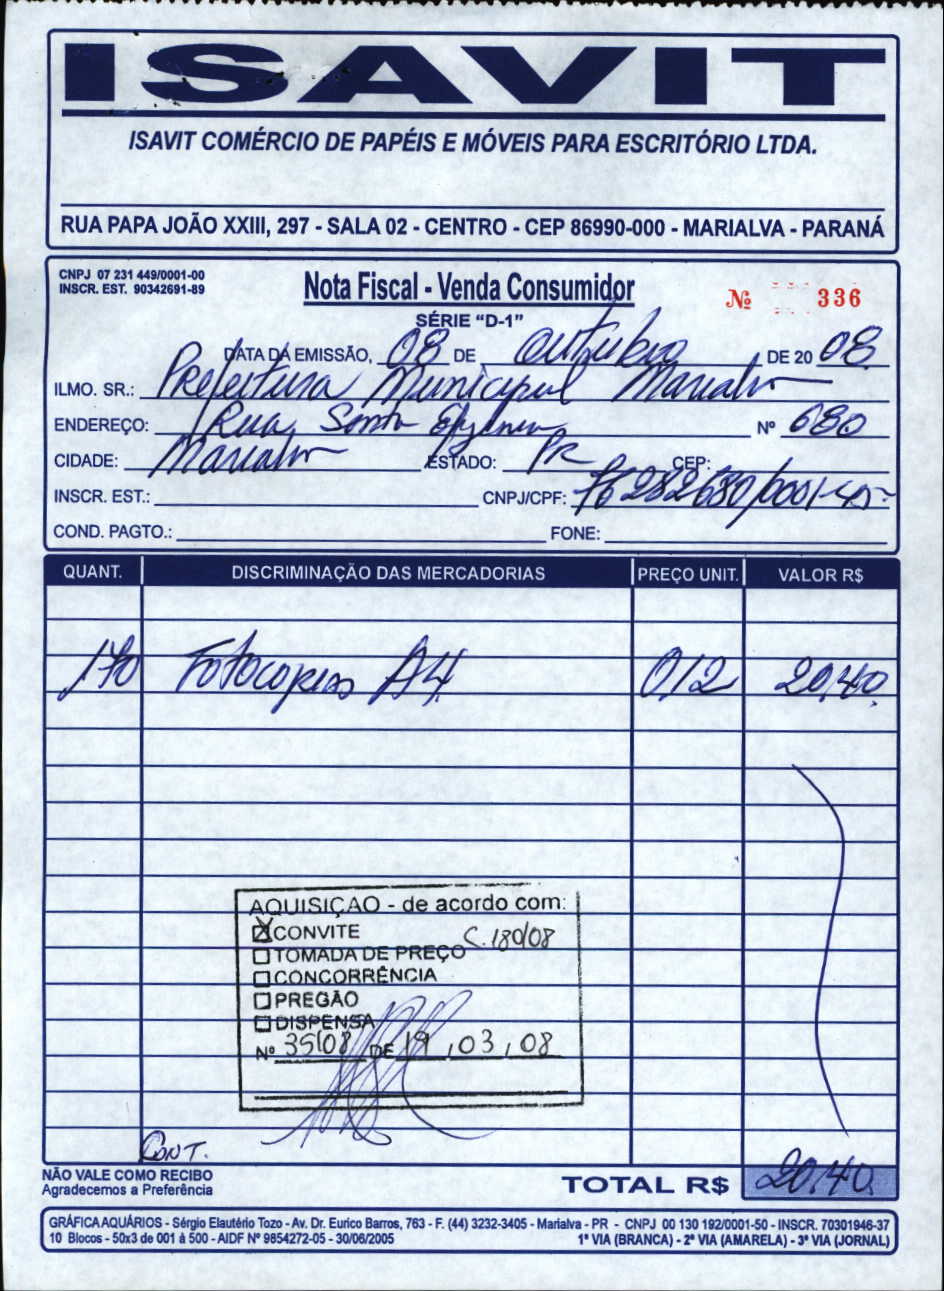 ISAVIT
ISAVIT COMÉRCIO DE PAPÉIS E MÓVEIS PARA ESCRITÓRIO LTDA.
RUA PAPA JOÃO XXIII, 297 - SALA 02 - CENTRO - CEP 86990-000 - MARIALVA - PARANÁ
CNPJ 07 231 449/0001-00
INSCR. EST. 90342691-89
Nota Fiscal - Venda Consumidor
Nº 336
SÉRIE "D-1"
DATA DA EMISSÃO, 08 DE outubro DE 20 08
ILMO. SR.: Prefeitura Municipal Marialva
ENDEREÇO: Rua Santa Efigênia Nº 680
CIDADE: Marialva ESTADO: PR CEP:
INSCR. EST.: CNPJ/CPF: 76282680/0001-45
COND. PAGTO.: FONE:
QUANT. DISCRIMINAÇÃO DAS MERCADORIAS PREÇO UNIT. VALOR R$
170 Fotocopias A4 012 20,40
AQUISIÇÃO - de acordo com:
X CONVITE C. 180/08
TOMADA DE PREÇO
CONCORRÊNCIA
PREGÃO
DISPENSA
Nº 35/08 DE 19 , 03 , 08
CONT.
NÃO VALE COMO RECIBO
Agradecemos a Preferência
TOTAL R$ 20,40
GRÁFICA AQUÁRIOS - Sérgio Elautério Tozo - Av. Dr. Eurico Barros, 763 - F. (44) 3232-3405 - Marialva - PR - CNPJ 00 130 192/0001-50 - INSCR. 70301946-37
10 Blocos - 50x3 de 001 à 500 - AIDF Nº 9854272-05 - 30/06/2005 1ª VIA (BRANCA) - 2ª VIA (AMARELA) - 3ª VIA (JORNAL)